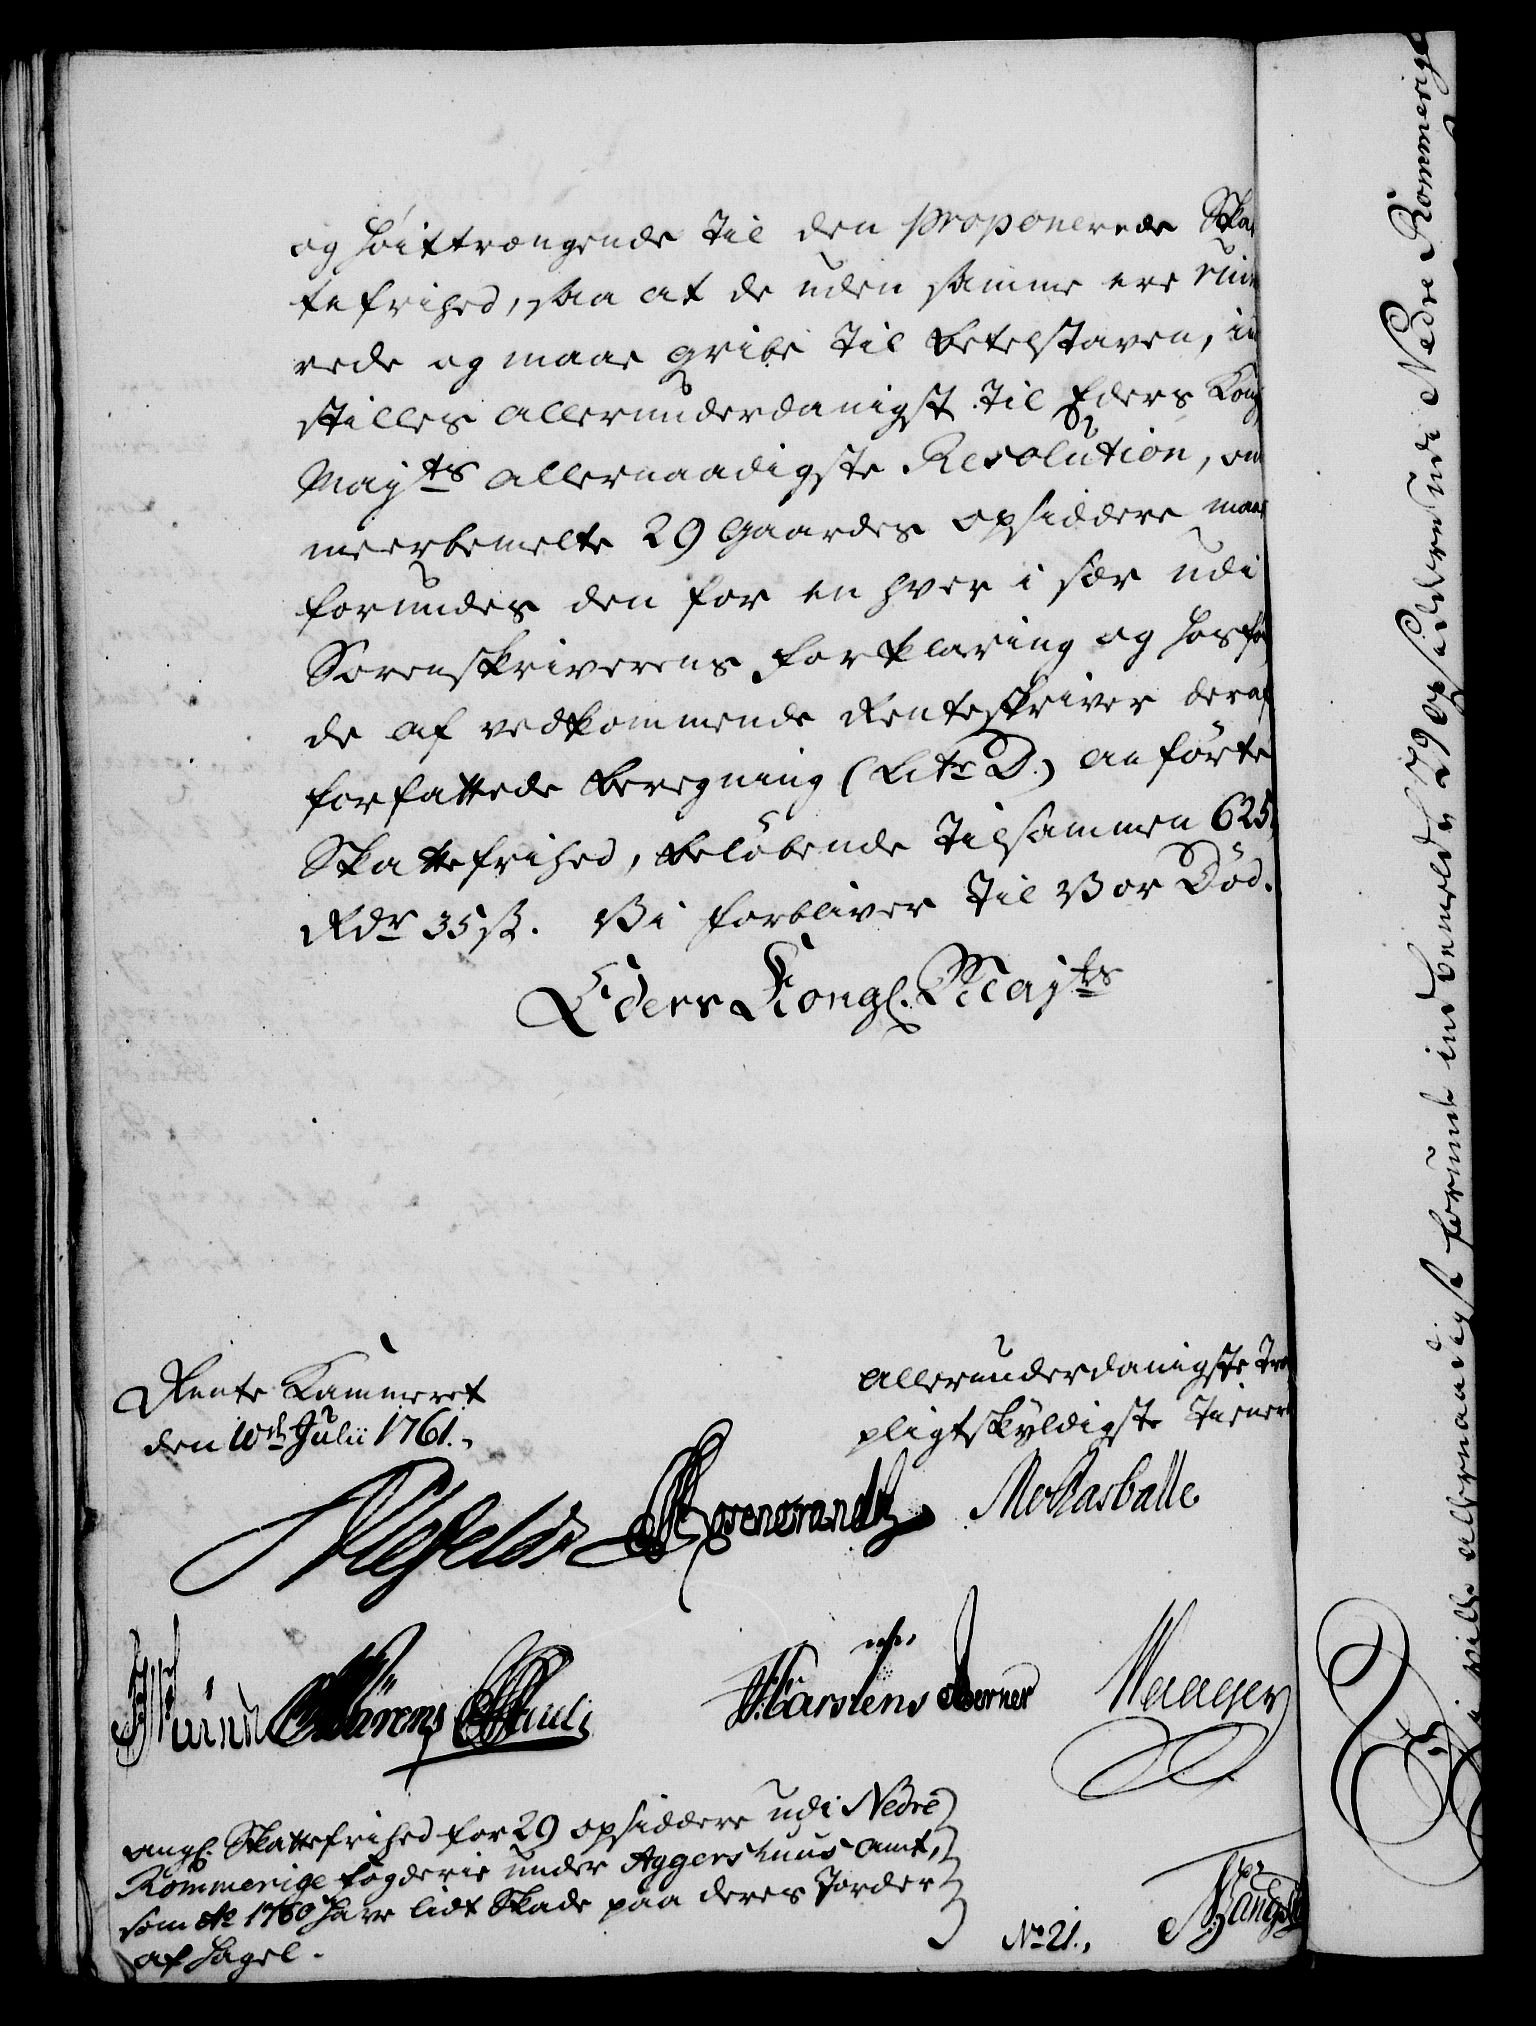 og høittrængende til den proponerede Skat
tefrihed, saa at de uden samme ere ruine
rede og maae gribe til betelstaven, ind
stilles allerunderdanigst til Eders Kongl.
Mayts allernaadigste Resolution, om
meerbemelte 29 Gaardes opsiddere maae
forundes den for en hver i sær udi
Sorenskriverens forklaring og hosføy
de af vedkommende Renteskriver deraf
forfattede beregning (Litr D.) anførte
Skattefrihed, beløbende tilsammen 625
Rdr 35 ß. Vi forbliver til Vor Død.
Eders Kongl. Mayts
Rente Kammeret
den 10de Julii 1761.
allerunderdanigste Troe
pligtskyldigste Tienere
Ahlefeldt Rosencrantz
Wärens Pauli
Carstens Berner Waager
angl. Skattefrihed for 29 opsiddere udi Nedre
Rommerige fogderie under Aggershuus amt,
som Ao 1760 have lidt Skade paa deres Jorder
af Hagel.
No 21.
Vi ville allernaadigst forunde indbemeldte 29 opsiddere udi Nedre Rommerige